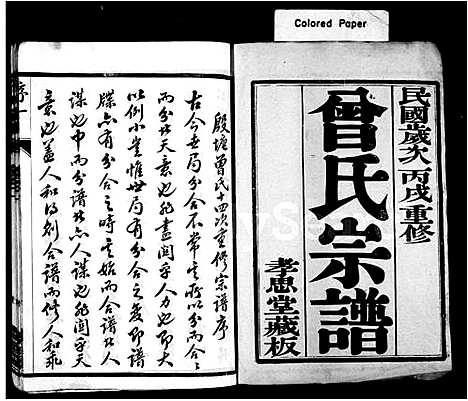 Colored Paper
民國歲次丙戌重修
曾氏宗譜
孝思堂藏板
殷塘曾氏十四次重修宗譜序
古今世局分合不常其所以分而合合
而分者天意也非盡關乎人力也即大
以例小豈惟世局有分合之變即譜
牒亦有分合之時其始而合譜也人
謀也中而分譜也亦人謀也非關乎天
意也蓋人和則合譜而修人和乖
序一